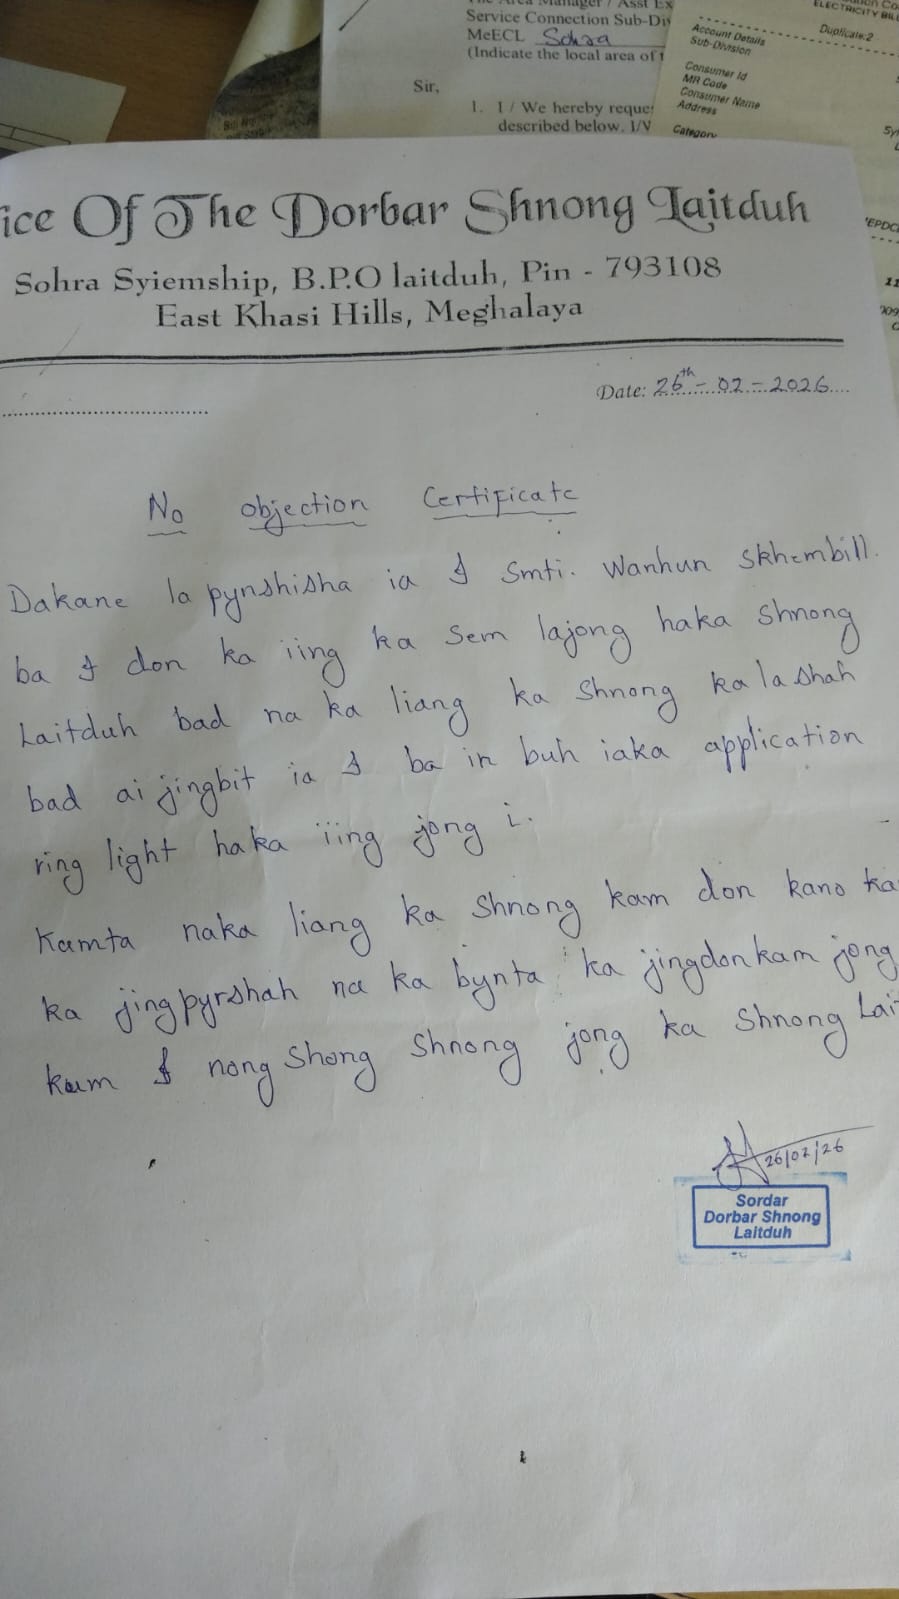 The Area Manager / Asst Ex
Service Connection Sub-Div
MeECL Sohra
(Indicate the local area of
Sir,
1. I / We hereby reques
described below. I/V
ELECTRICITY BILL
Duplicate:2
Account Details
Sub-Division
Consumer Id
MR Code
Consumer Name
Address
Category
ice Of The Dorbar Shnong Laitduh
Sohra Syiemship, B.P.O laitduh, Pin - 793108
East Khasi Hills, Meghalaya
Date: 26th - 02 - 2026
No objection Certificate
Dakane la pynshisha ia I Smti. Wanhun Skhembill.
ba I don ka iing ka sem lajong haka Shnong
Laitduh bad na ka liang ka Shnong ka la shah
bad ai jingbit ia I ba in buh iaka application
ring light haka ïing jong i.
Kumta naka liang ka Shnong kam don kano ka
ka jingpyrshah na ka bynta ka jingdonkam jong
kum I nong Shong Shnong jong ka Shnong Lait
26/02/26
Sordar
Dorbar Shnong
Laitduh